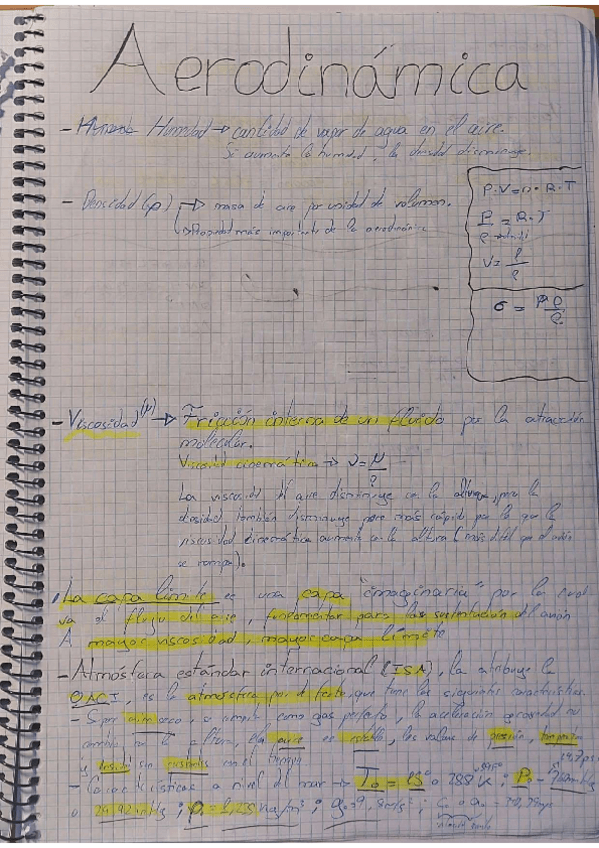 Aerodinámica
- Humedad → cantidad de vapor de agua en el aire.
Si aumenta la humedad, la densidad disminuye.
- Densidad (ρ) → masa de aire por unidad de volumen.
→ Propiedad más importante de la aerodinámica
P·V=n·R·T
P/ρ = R·T
σ = ρ/ρ
- Viscosidad (μ) → Fricción interna de un fluido por la atracción
molecular.
Viscosidad cinemática → ν = μ/ρ
La viscosidad del aire disminuye con la altura, pero la
densidad también disminuye pero más rápido por lo que la
viscosidad cinemática aumenta con la altura (más difícil que el avión
se rompa).
La capa límite es una capa "imaginaria" por la cual
va el flujo del aire, fundamental para la sustentación del avión
A mayor viscosidad, mayor capa límite
- Atmósfera estándar internacional (ISA), la atribuye la
OACI, es la atmósfera por defecto, que tiene las siguientes características
- aire seco, se comporta como gas perfecto, la aceleración gravedad no
cambia con la altura, el aire es estable, los valores de presión, temperatura
y densidad sin cambios con el tiempo
- Características a nivel del mar → T₀ = 15° o 288 K ; P₀ = 760 mmHg
o 29,92 inHg ; ρ₀ = 1,225 kg/m³ ; g₀ = 9,8 m/s²